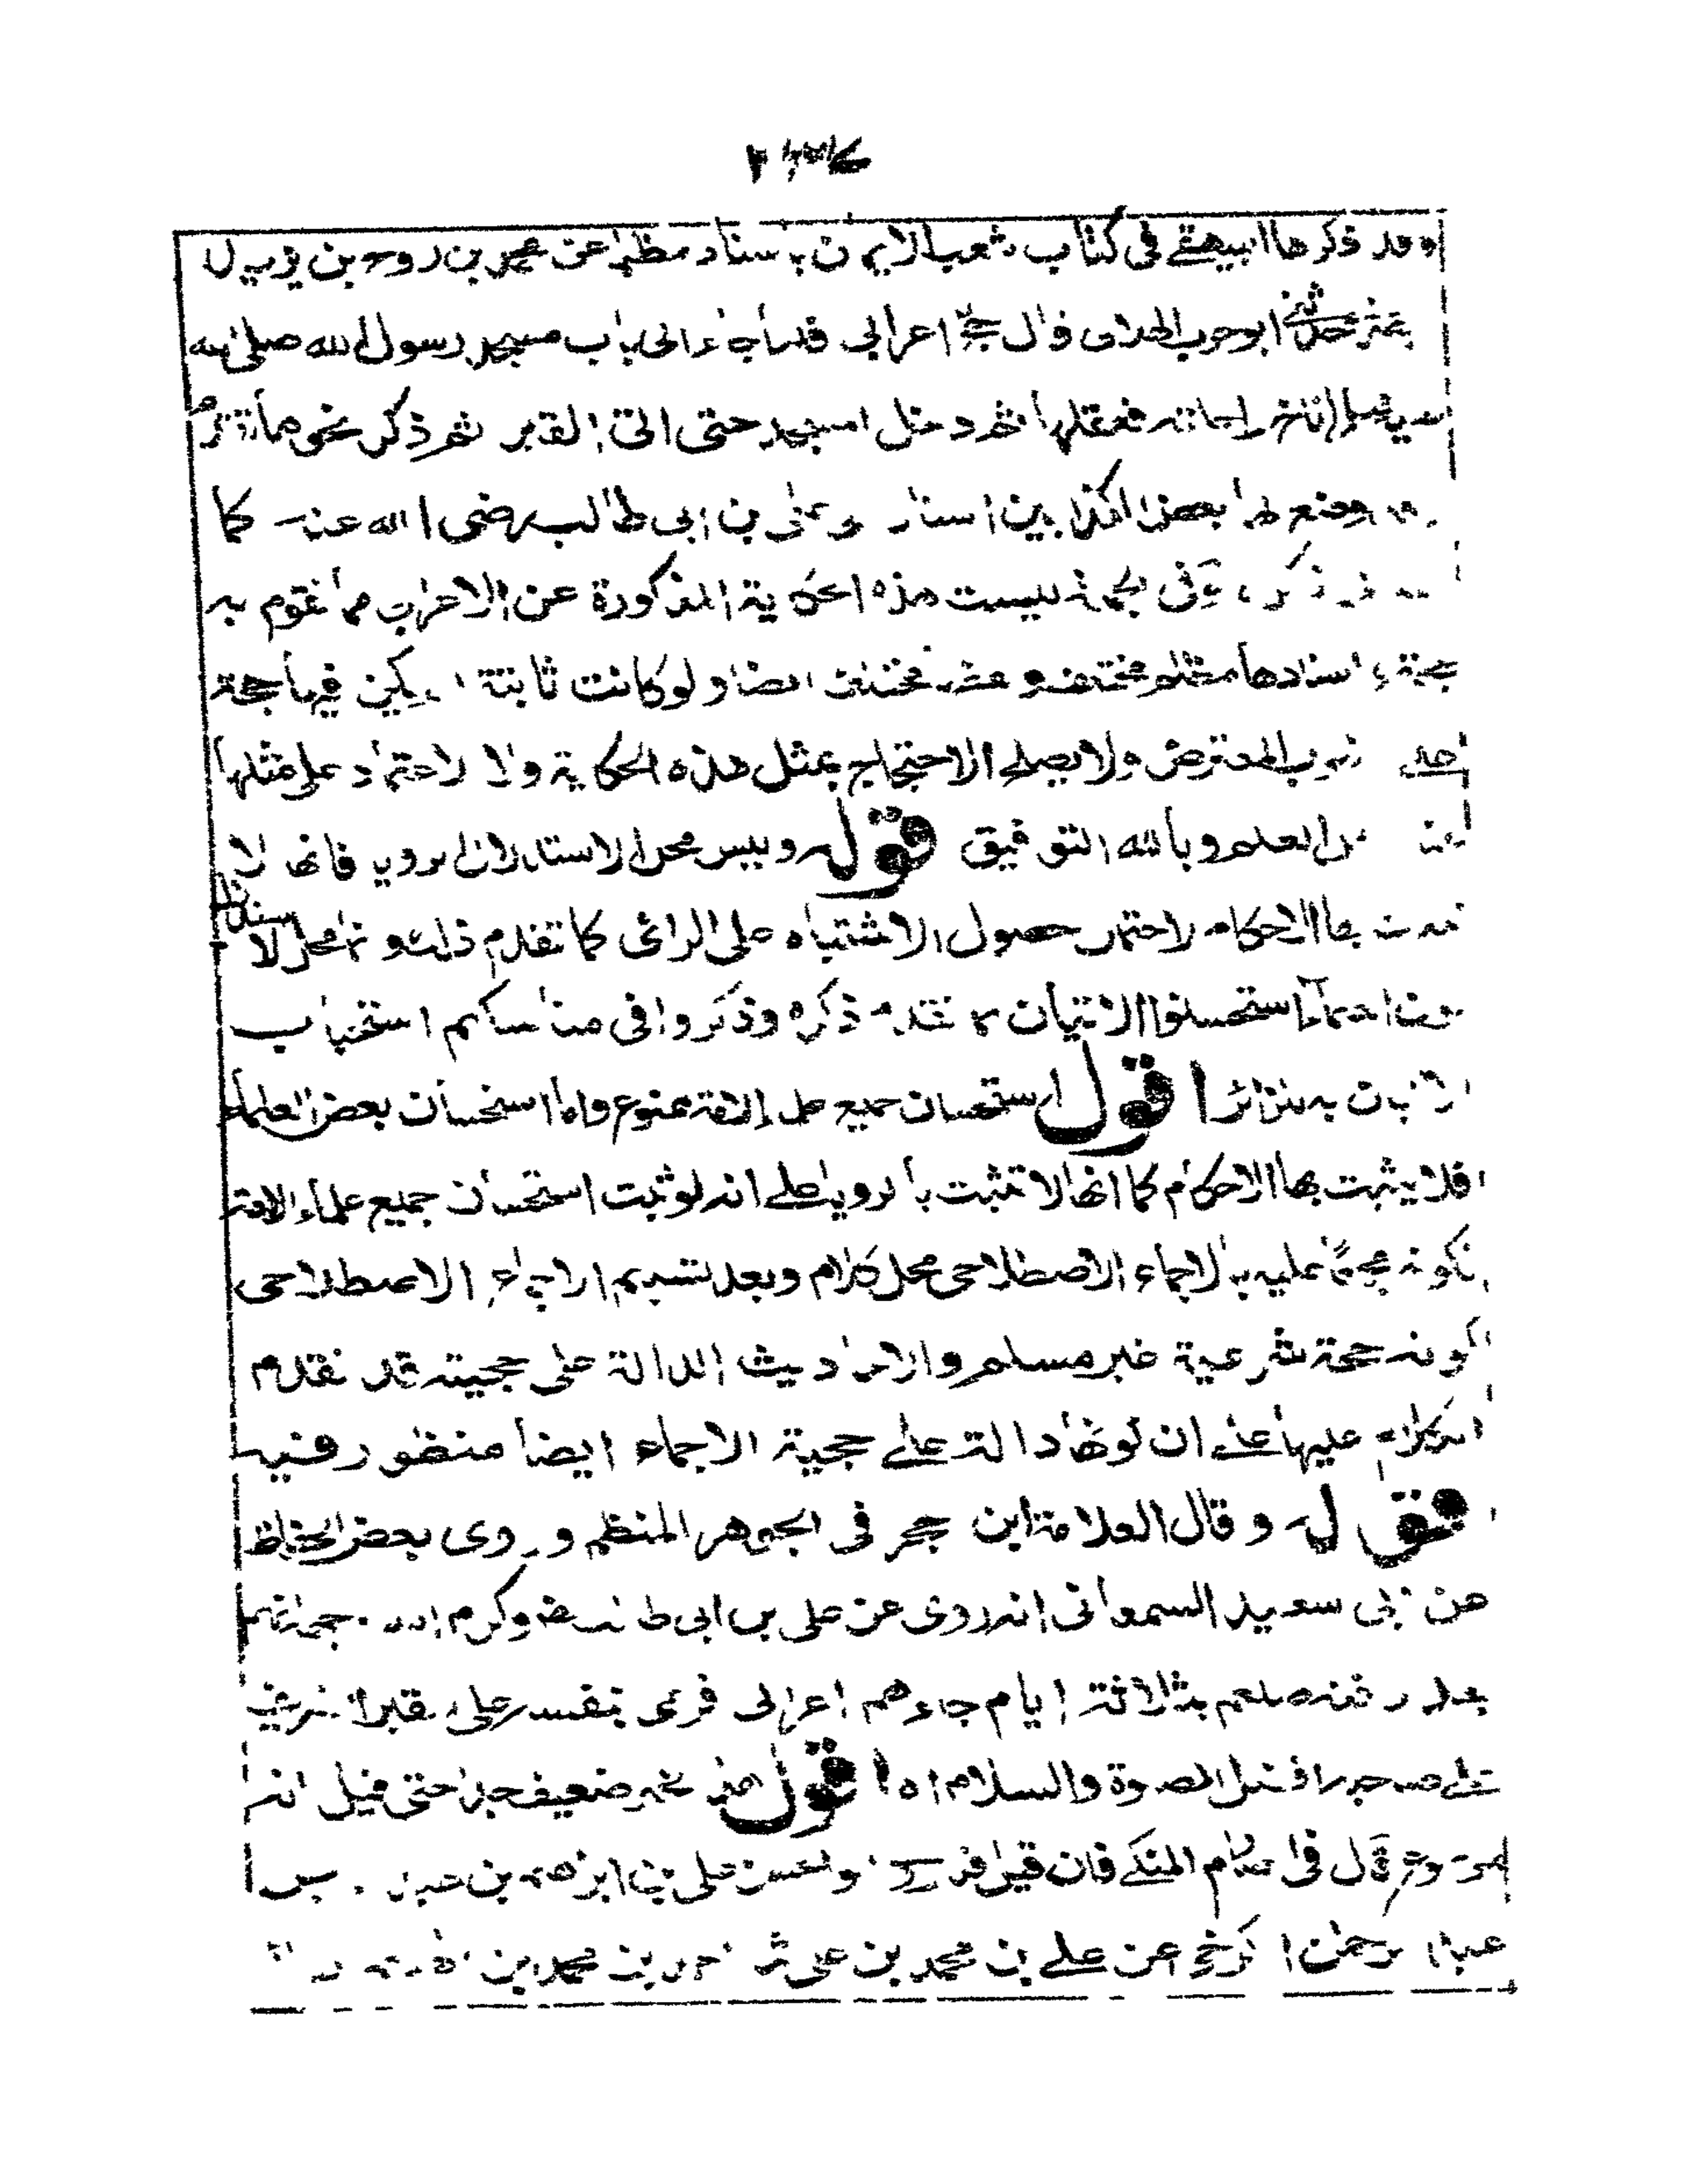 وقد ذكرها البيهقي في كتاب شعب الايمان باسناد مظلم عن محمد بن روح بن يزيد
حدثني ابو حرب الهلالى قال حج اعرابى فلما جاء الى باب مسجد رسول الله صلى الله
عليه وسلم اناخ راحلته فعقلها ثم دخل المسجد حتى اتى القبر ثم ذكر نحو ما تقدم
وضع لها بعض الكذابين اسنادا الى على بن ابى طالب رضى الله عنه كما
وفى الجملة ليست هذه الحكاية المذكورة عن الاعرابى مما تقوم به
حجة واسنادها مظلم مختلف ولفظها مختلف ايضا ولو كانت ثابتة لم يكن فيها حجة
على مطلوب المعترض ولا يصلح الاحتجاج بمثل هذه الحكاية ولا الاعتماد على مثلها
عند اهل العلم وبالله التوفيق قوله وليس محل الاستدلال الرويا فانها لا
تثبت بها الاحكام لاحتمال حصول الاشتباه على الرائى كما تقدم ذلك وانما محل الاستدلال
كون العلماء استحسنوا الاتيان بما تقدم ذكره وذكروا فى مناسكهم استحباب
الاتيان به للزائر اقول استحسان جميع علماء الامة ممنوع واما استحسان بعض العلماء
فلا يثبت بها الاحكام كما انها لا تثبت بالرويا على انه لو ثبت استحسان جميع علماء الامة
لكونه مجمعا عليه بالاجماع الاصطلاحى محل كلام وبعد تسليم الاجماع الاصطلاحى
كونه حجة شرعية غير مسلم والاحاديث الدالة على حجيته قد تقدم
الكلام عليها على ان كونها دالة على حجية الاجماع ايضا منظور فيه
قوله وقال العلامة ابن حجر فى الجوهر المنظم وروى بعض الحفاظ
عن ابى سعيد السمعانى انه روى عن على بن ابى طالب رضـ وكرم الله وجهه انهم
بعد دفنه صلعم بثلاثة ايام جاءهم اعرابى فرمى بنفسه على القبر الشريف
على صاحبه افضل الصلوة والسلام اه اقول هذا خبر ضعيف جدا حتى قيل انه
موضوع قال فى الصارم المنكى فان قيل قد روى ابو الحسن على بن ابراهيم بن عبد الله بن
عبد الرحمن الكرخى عن على بن محمد بن على ثنا احمد بن محمد بن